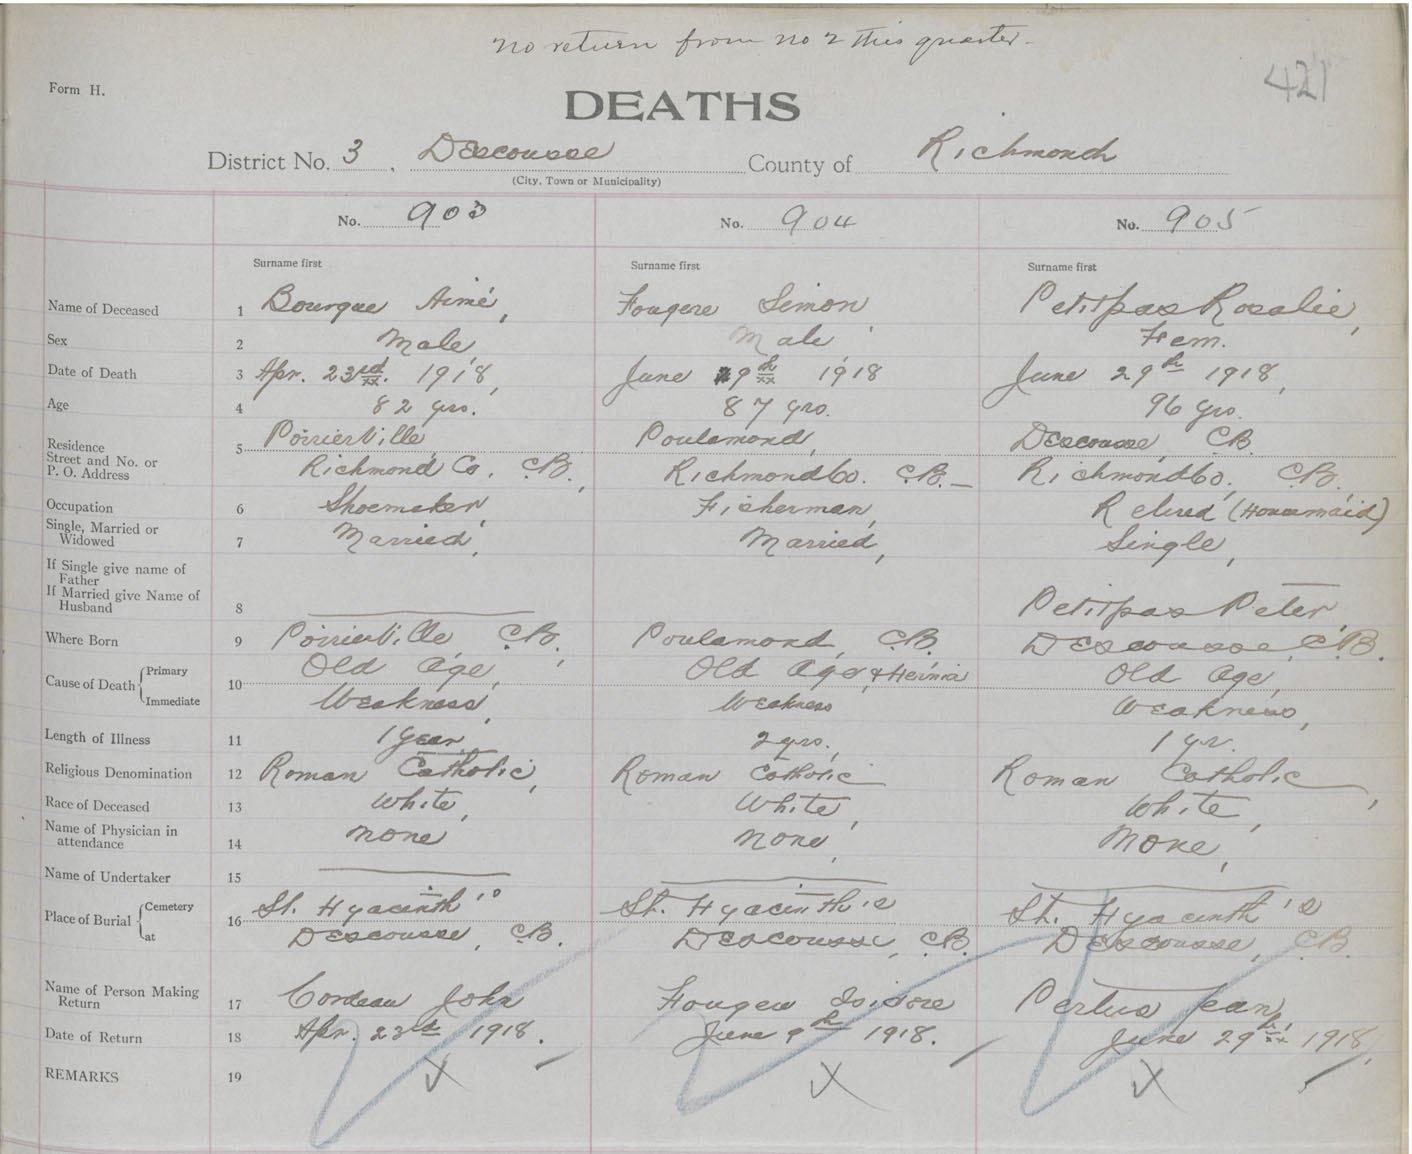 no return from no 2 this quarter.
421
Form H.
DEATHS
District No. 3, Descousse County of Richmond
(City, Town or Municipality)
No. 903 No. 904 No. 905
Surname first Surname first Surname first
Name of Deceased 1 Bourque Aimé, Fougere Simon, Petitpas Rosalie,
Sex 2 Male, Male Fem.
Date of Death 3 Apr. 23rd. 1918, June 9th 1918 June 29th 1918,
Age 4 82 yrs. 87 yrs. 96 yrs.
Residence Street and No. or P. O. Address 5 PoirierVille, Poulamond, Descousse, C.B.
Richmond Co. C.B., Richmond Co. C.B.— Richmond Co. C.B.,
Occupation 6 Shoemaker, Fisherman, Retired (Housemaid)
Single, Married or Widowed 7 Married, Married, Single,
If Single give name of Father
If Married give Name of Husband 8 Petitpas Peter,
Where Born 9 PoirierVille C.B., Poulamond, C.B. Descousse, C.B.
Cause of Death Primary 10 Old Age, Old Age & Hernia Old Age,
Immediate Weakness, Weakness Weakness,
Length of Illness 11 1 year, 2 yrs., 1 yr.
Religious Denomination 12 Roman Catholic, Roman Catholic Roman Catholic,
Race of Deceased 13 White, White, White,
Name of Physician in attendance 14 None None, None,
Name of Undertaker 15
Place of Burial Cemetery 16 St. Hyacinth's St. Hyacinth's St. Hyacinth's
at Descousse, C.B. Descousse, C.B. Descousse, C.B.
Name of Person Making Return 17 Cordeau John Fougere Isidore Pertus Jean,
Date of Return 18 Apr. 23rd 1918. June 9th 1918. June 29th 1918,
REMARKS 19 X X X